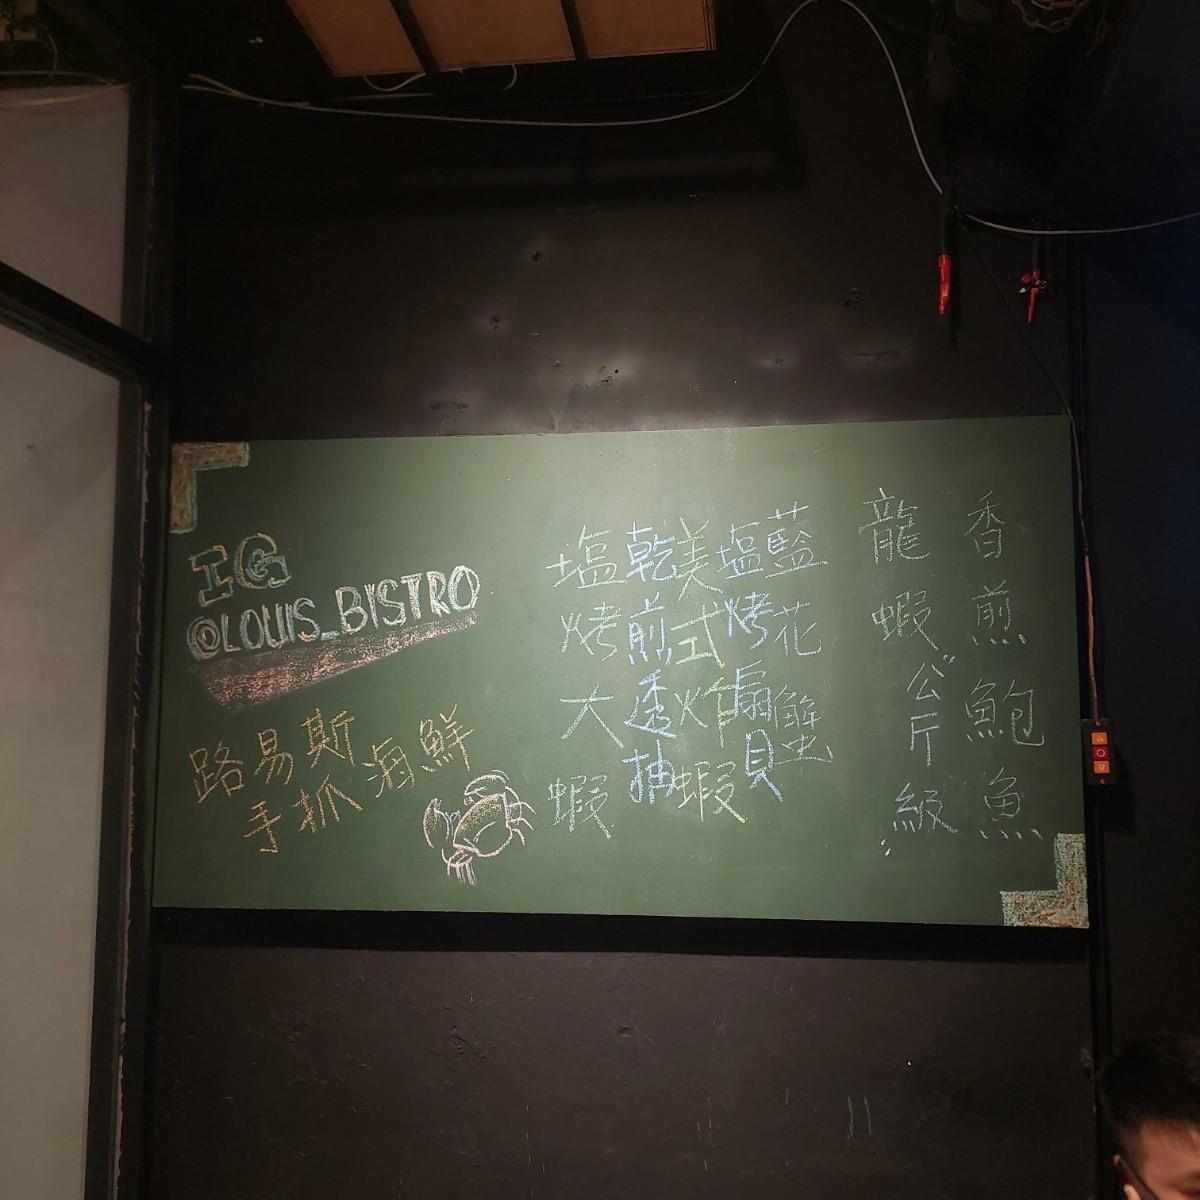 IG
@LOUIS_BISTRO
路易斯
手抓海鮮
香煎鮑魚
龍蝦"公斤級"
藍花蟹
塩烤扇貝
美式炸蝦
乾煎透抽
塩烤大蝦